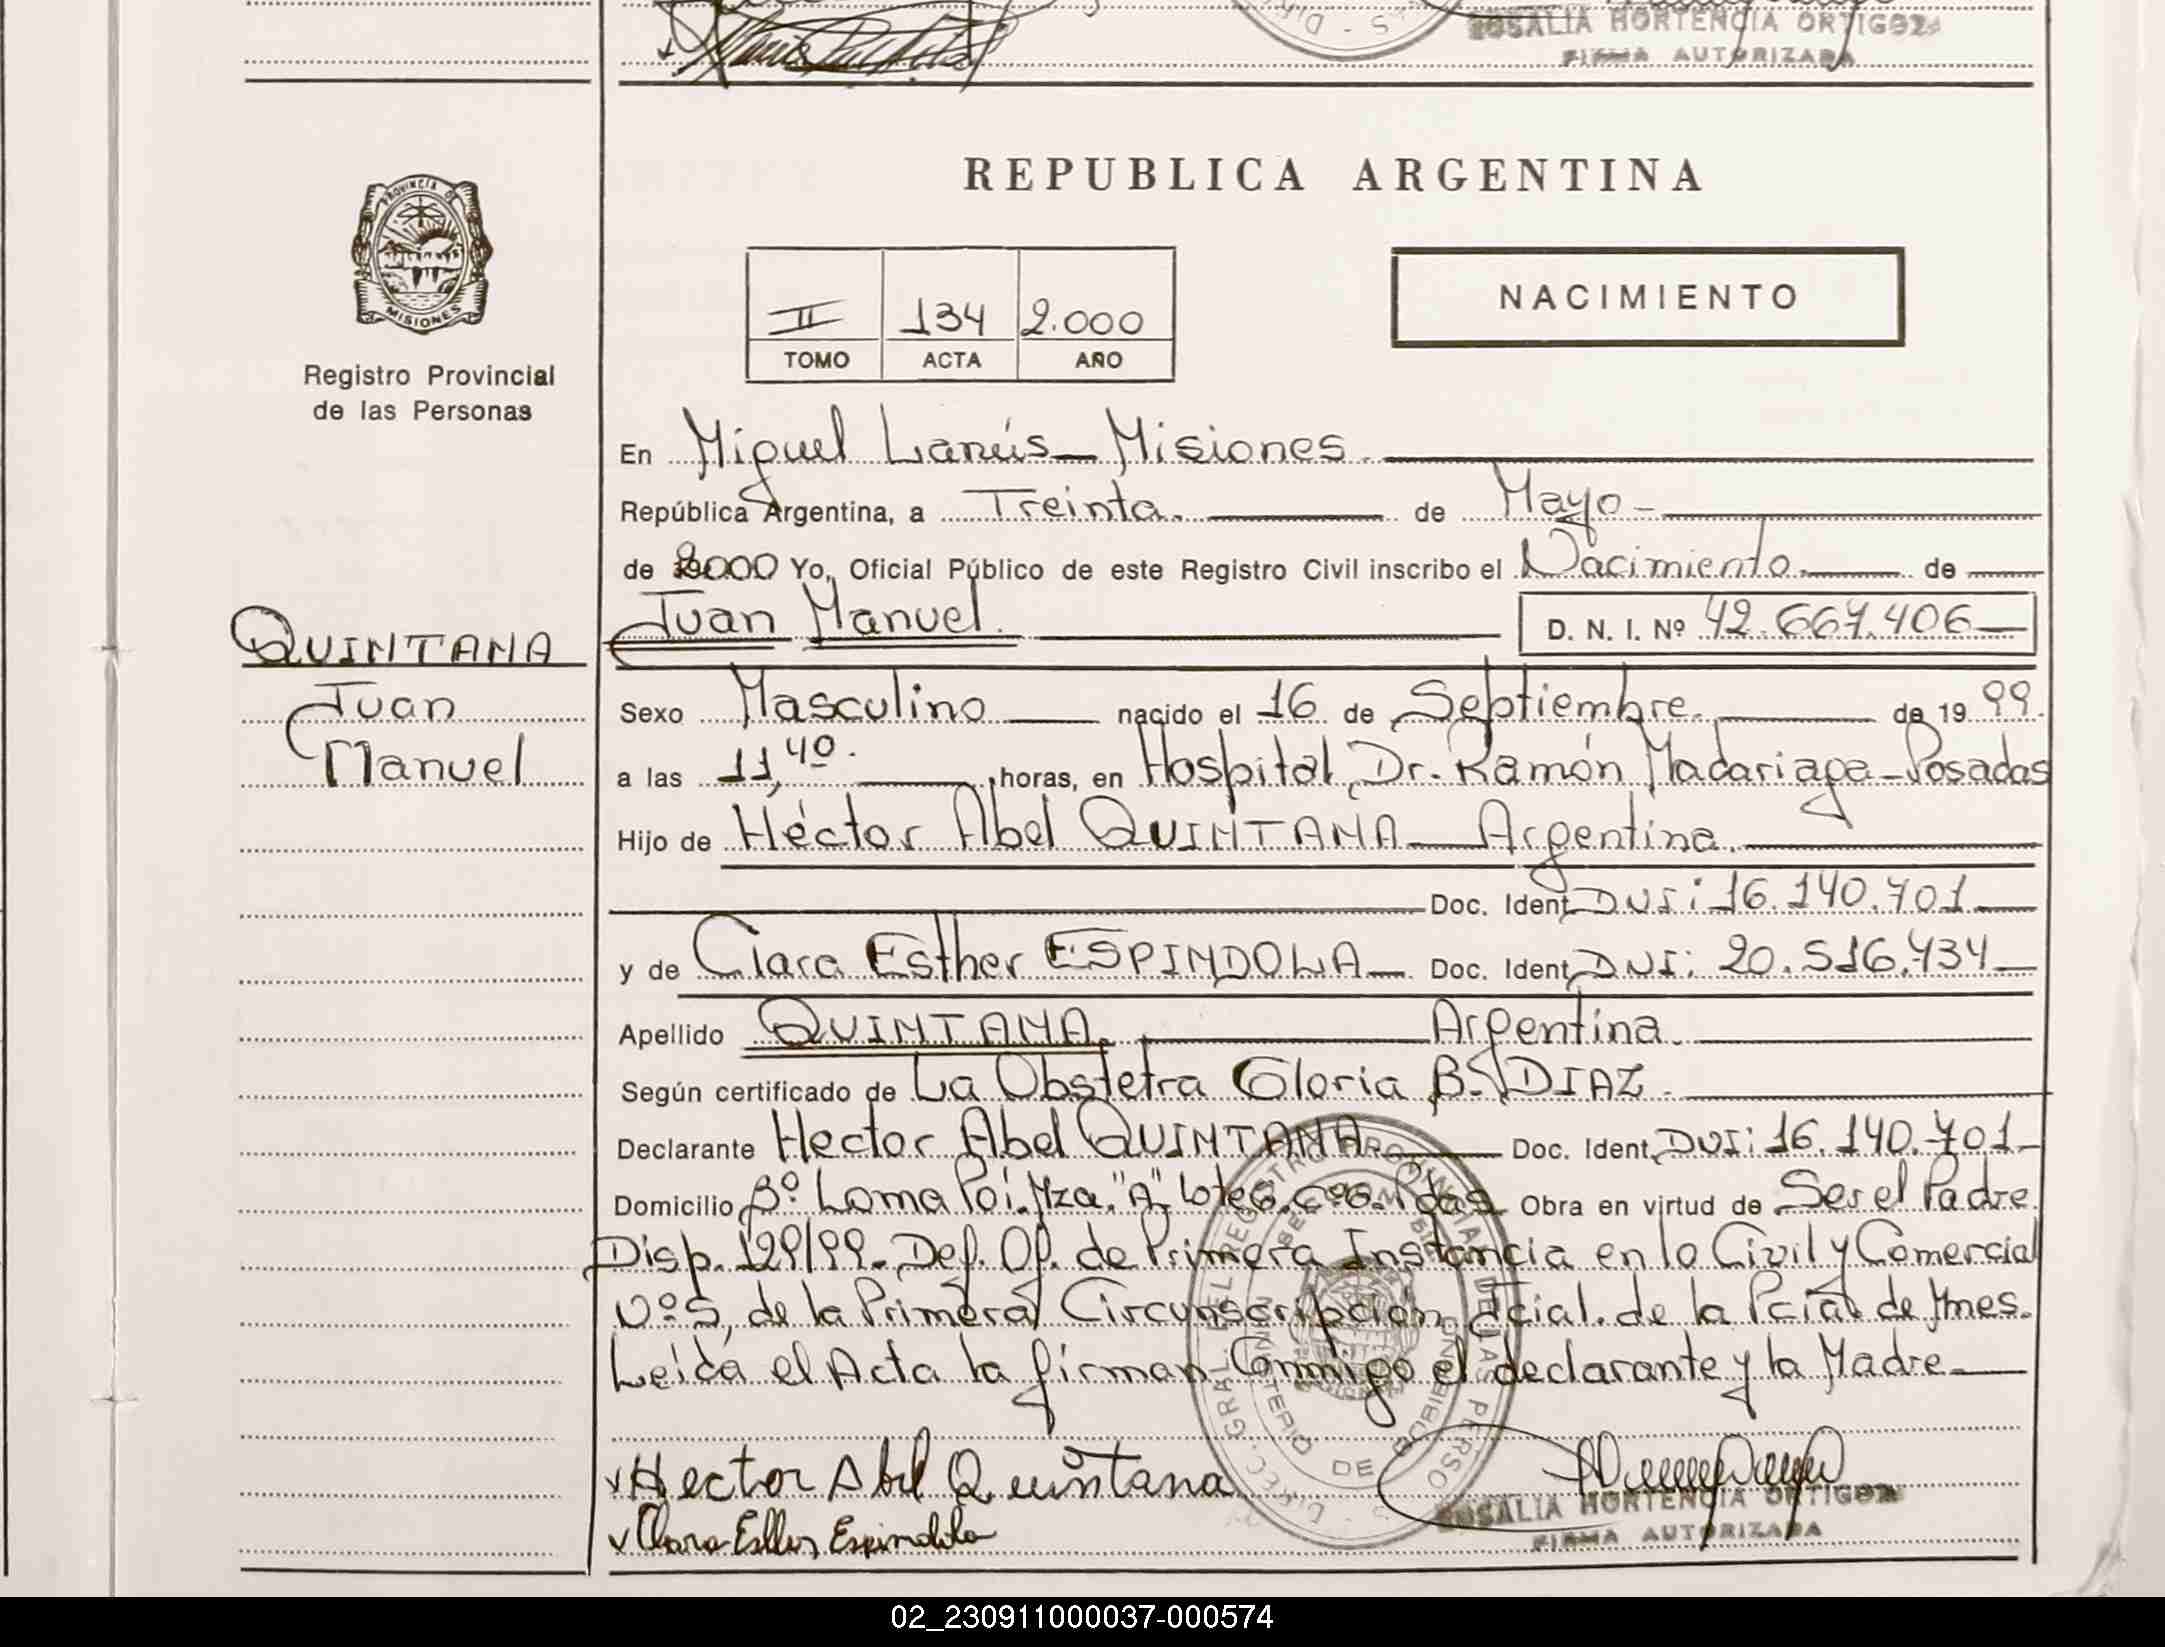 ROSALIA HORTENCIA ORTIGOZA
FIRMA AUTORIZADA
PROVINCIA DE
MISIONES
Registro Provincial
de las Personas
REPUBLICA ARGENTINA
II 134 2.000
TOMO ACTA AÑO
NACIMIENTO
En Miguel Lanús - Misiones.
República Argentina, a Treinta. de Mayo -
de 2000 Yo, Oficial Público de este Registro Civil inscribo el Nacimiento. de
QUINTANA
Juan
Manuel
Juan Manuel. D. N. I. Nº 42.667.406
Sexo Masculino nacido el 16 de Septiembre. de 1999.
a las 11,40. horas, en Hospital Dr. Ramón Madariaga - Posadas
Hijo de Héctor Abel QUINTANA - Argentina.
Doc. Ident. DNI: 16.140.701
y de Clara Esther ESPINDOLA Doc. Ident. DNI: 20.516.734
Apellido QUINTANA. Argentina.
Según certificado de La Obstetra Gloria B. DIAZ.
Declarante Hector Abel QUINTANA Doc. Ident. DNI: 16.140.701
Domicilio Bº Loma Poí. Mza. "A" Lote 6. Cº6. Pdas Obra en virtud de Ser el Padre.
Disp. 129/99. Def. Of. de Primera Instancia en lo Civil y Comercial
Nº 5, de la Primera Circunscripción Jcial. de la Pcia de Mnes.
Leída el Acta la firman Conmigo el declarante y la Madre
Hector Abel Quintana
Clara Esther Espindola
DIREC. GRAL. DEL REGISTRO PROVINCIAL DE LAS PERSONAS
MINISTERIO DE GOBIERNO
ROSALIA HORTENCIA ORTIGOZA
FIRMA AUTORIZADA
02_230911000037-000574